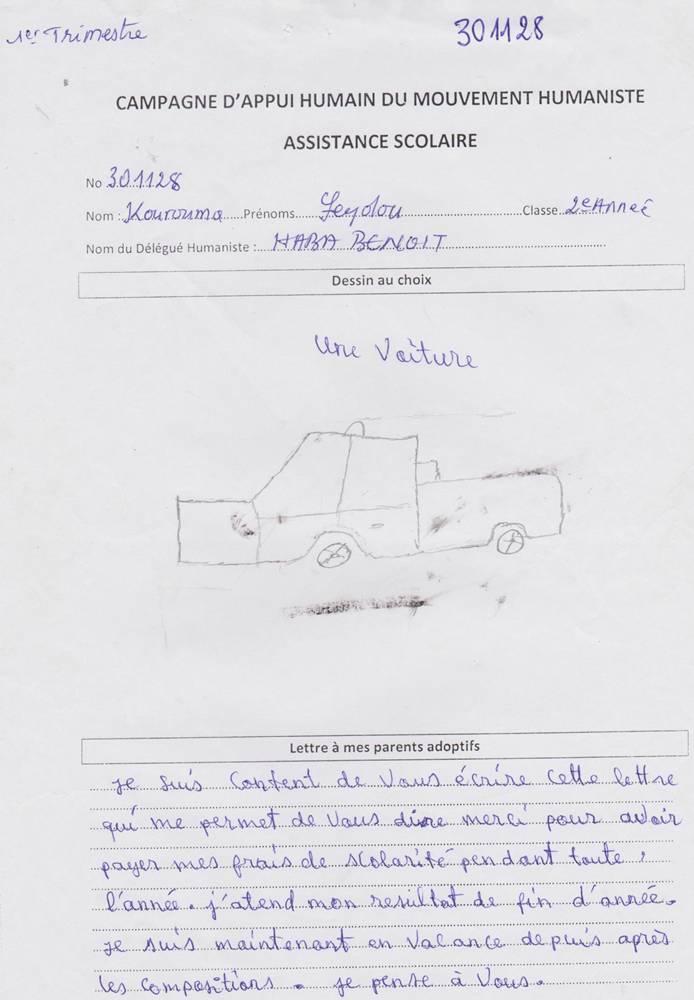 1er Trimestre
301128
CAMPAGNE D'APPUI HUMAIN DU MOUVEMENT HUMANISTE
ASSISTANCE SCOLAIRE
No 301128
Nom : Kourouma Prénoms Seydou Classe 2eAnneé
Nom du Délégué Humaniste : HABA BENOIT
Dessin au choix
Une Voiture
Lettre à mes parents adoptifs
Je suis content de Vous écrire cette lettre
qui me permet de Vous dire merci pour avoir
payer mes frais de scolarité pendant toute,
l'année. j'atend mon resultat de fin d'année.
Je suis maintenant en Vacance depuis après
les compositions. Je pense à Vous.